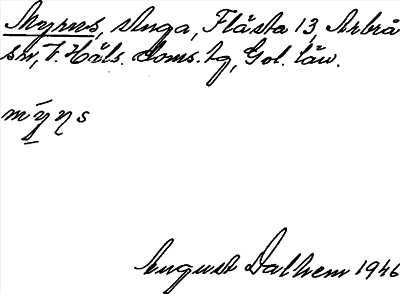 Myrns, stuga, Flästa 13, Arbrå
sn, V. Häls. doms. tg, Gol. län.
mýɳs
August Dalhem 1946